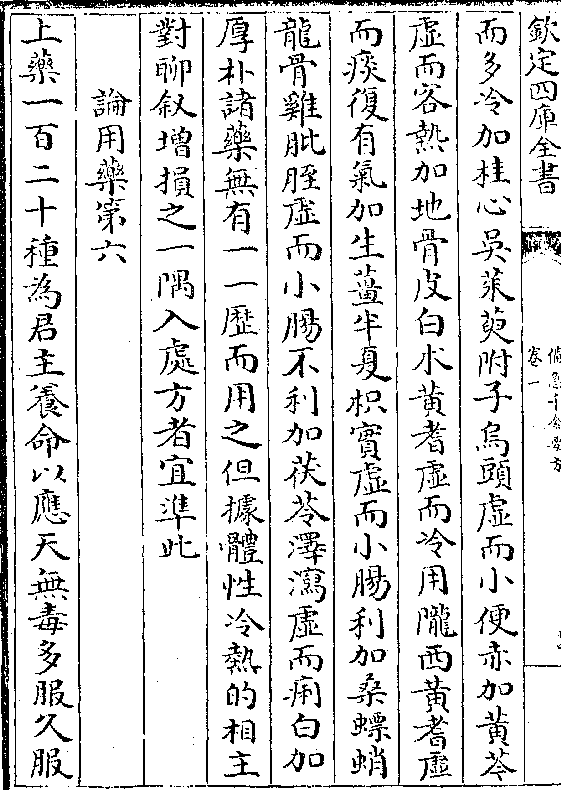 欽定四庫全書
備急千金要方
卷一
而多冷加桂心吳茱萸附子烏頭虛而小便赤加黃芩
虛而客熱加地骨皮白水黃耆虛而冷用隴西黃耆虛
而痰復有氣加生薑半夏枳實虛而小腸利加桑螵蛸
龍骨雞肶胵虛而小腸不利加茯苓澤瀉虛而痢白加
厚朴諸藥無有一一歷而用之但據體性冷熱的相主
對聊叙增損之一隅入處方者宜準此
論用藥第六
上藥一百二十種為君主養命以應天無毒多服久服